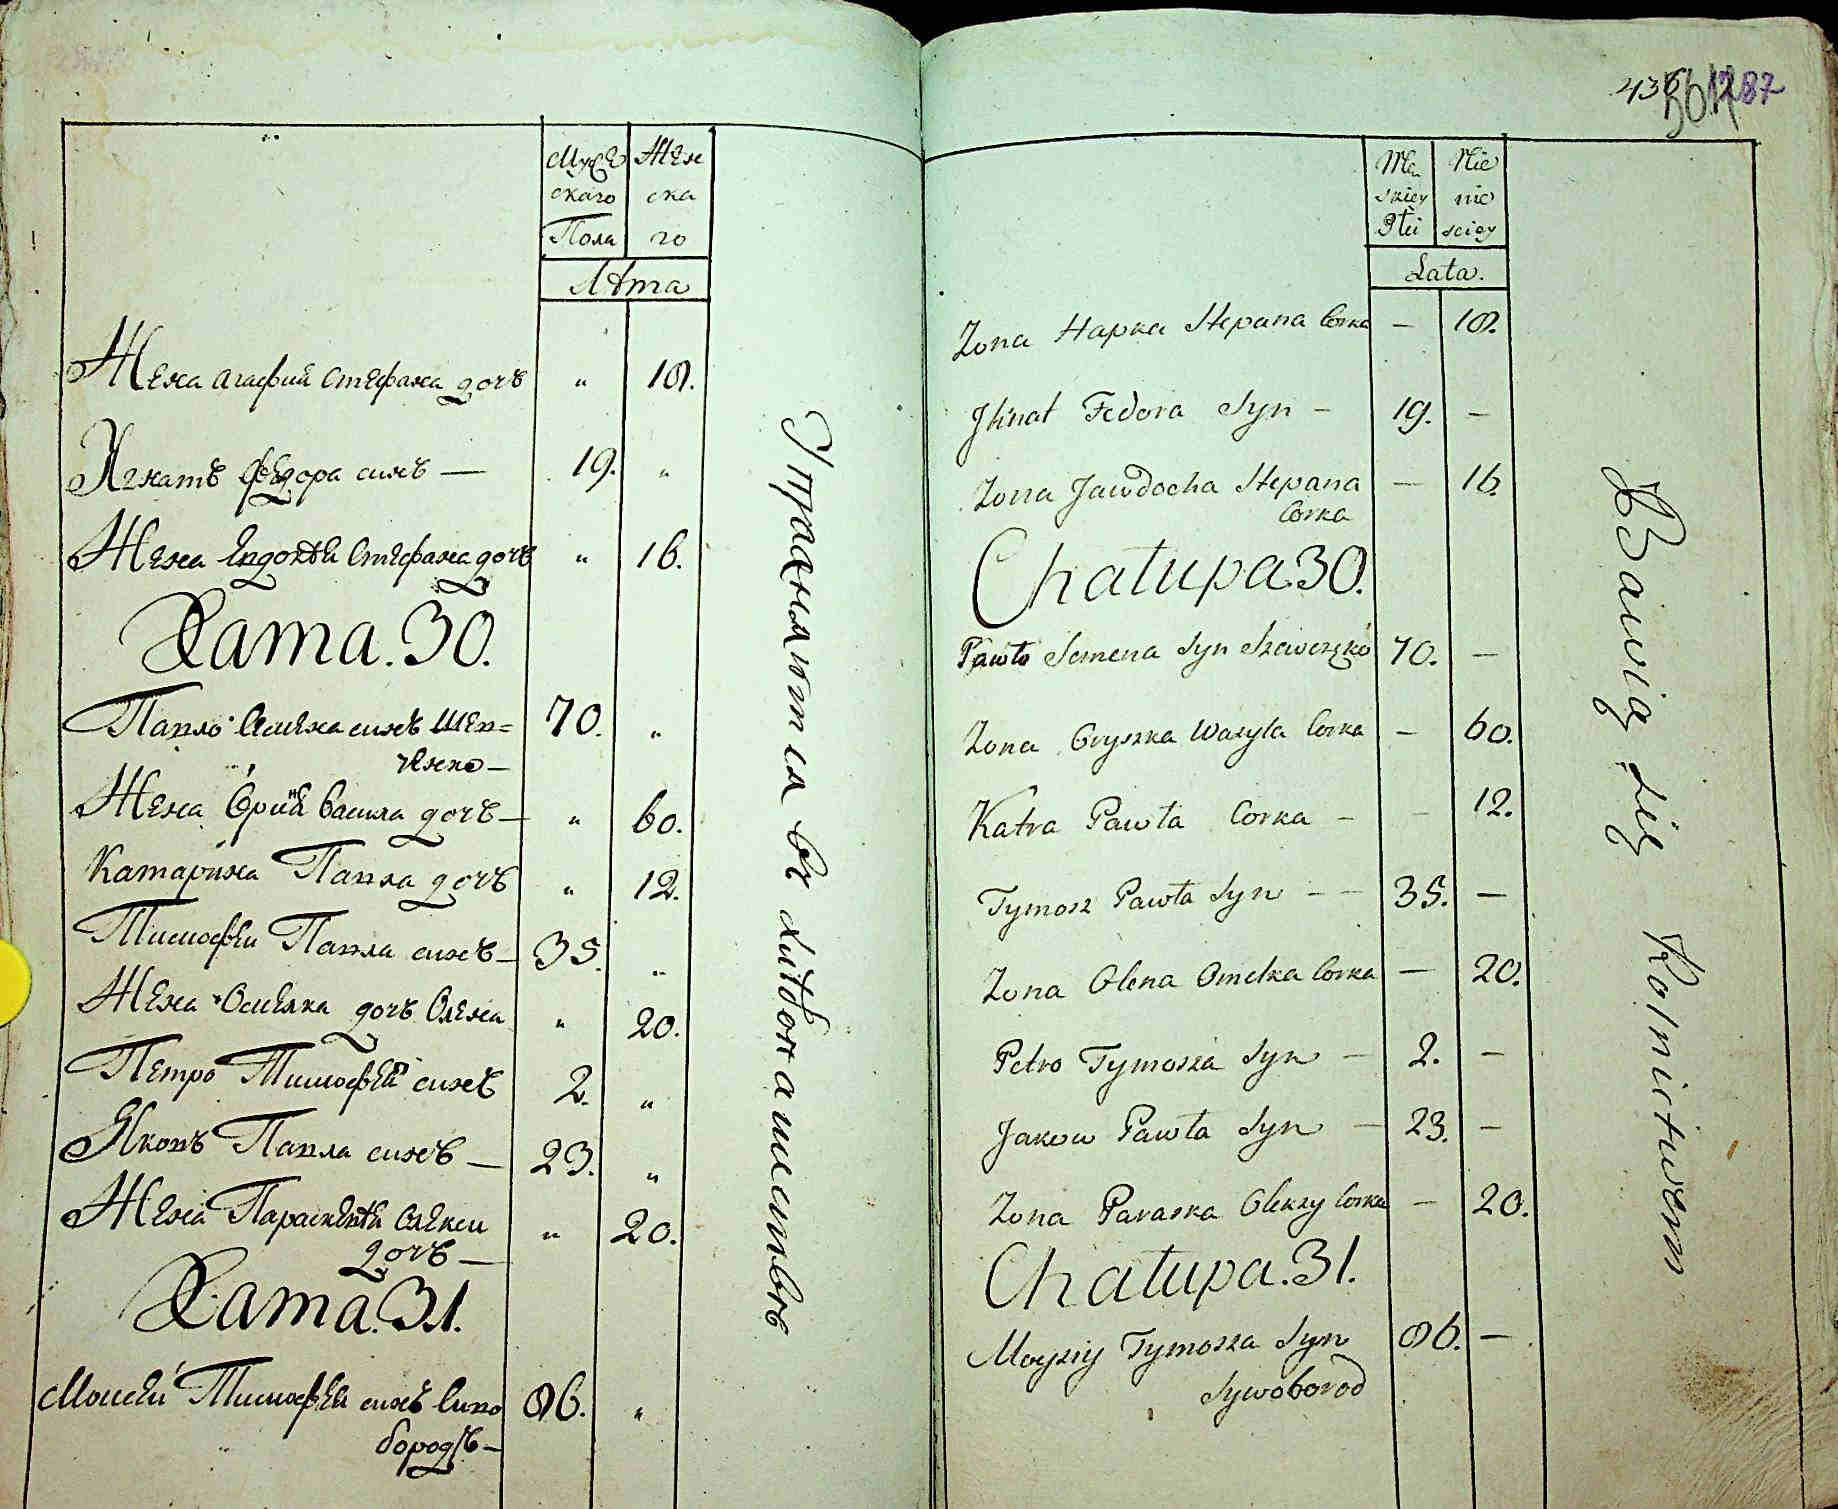 Мужескаго Женска
Пола го
Лѣта
Жена Агафия Стефана дочъ " 18.
Игнатъ Федора синъ — 19. "
Жена Евдокѣи Стефана дочъ " 16.
Хата. 30.
Павло Семена синъ Шев= 70. "
ченко —
Жена Ѳрина Васила дочъ — " 60.
Катарина Павла дочъ " 12.
Тимофѣи Павла синъ — 35. "
Жена Омелка дочъ Олена " 20.
Петро Тимофѣй синъ 2. "
Яковъ Павла синъ — 23. "
Жена Параскевѣи Олекси " 20.
дочъ —
Хата. 31.
Моисей Тимофѣй синъ Сиво 86. "
бородъ —
Упражняются въ хлѣбопашествѣ
287
Mę Nie
skiey nie
Płci sciey
Lata.
Zona Hapka Stepana Corka — 18.
Jhnat Fedora Syn — 19. —
Zona Jawdocha Stepana — 16.
Corka
Chałupa 30.
Pawło Semena Syn Szewczęko 70. —
Zona Oryszka Wasyla Corka — 60.
Katra Pawła Corka — — 12.
Tymosz Pawła Syn — — 35. —
Zona Olena Omelka Corka — 20.
Petro Tymosza Syn — 2. —
Jakow Pawła Syn — 23. —
Zona Paraska Olexy Corka — 20.
Chałupa. 31.
Moysiy Tymosza Syn 86. —
Sywoborod
Bawią się Rolnictwem